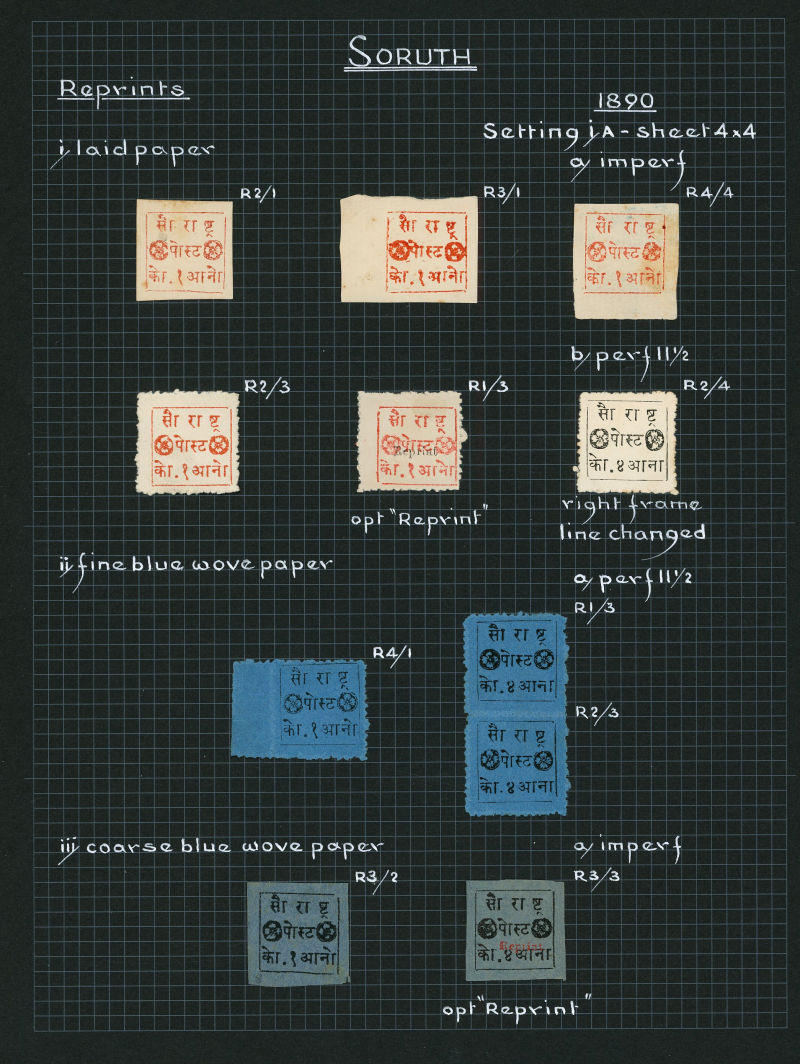 SORUTH
Reprints
1890
Setting iA - sheet 4x4
i, laid paper
a, imperf
R2/1
R3/1
R4/4
सौ रा ष्ट्र
पोस्ट
को. १ आनो
सौ रा ष्ट्र
पोस्ट
को. १ आनो
सौ रा ष्ट्र
पोस्ट
को. १ आनो
b, perf 11½
R2/3
R1/3
R2/4
सौ रा ष्ट्र
पोस्ट
को. १ आनो
सौ रा ष्ट्र
पोस्ट
Reprint
को. १ आनो
सौ रा ष्ट्र
पोस्ट
को. ४ आना
opt "Reprint"
right frame
line changed
ii, fine blue wove paper
a, perf 11½
R1/3
R4/1
सौ रा ष्ट्र
पोस्ट
को. ४ आना
सौ रा ष्ट्र
पोस्ट
को. १ आनो
R2/3
सौ रा ष्ट्र
पोस्ट
को. ४ आना
iii, coarse blue wove paper
a, imperf
R3/2
R3/3
सौ रा ष्ट्र
पोस्ट
को. १ आनो
सौ रा ष्ट्र
पोस्ट
Reprint
को. ४ आना
opt "Reprint"